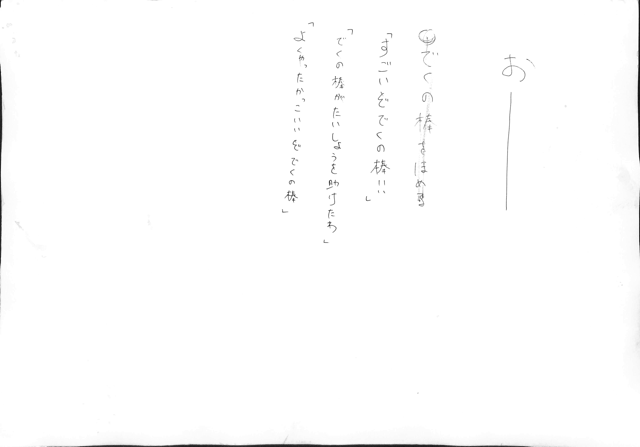 おー
でくの棒をほめる
「すごいぞでくの棒!!」
「でくの棒がたいしょうを助けたわ」
「よくやったかっこいいぞでくの棒」